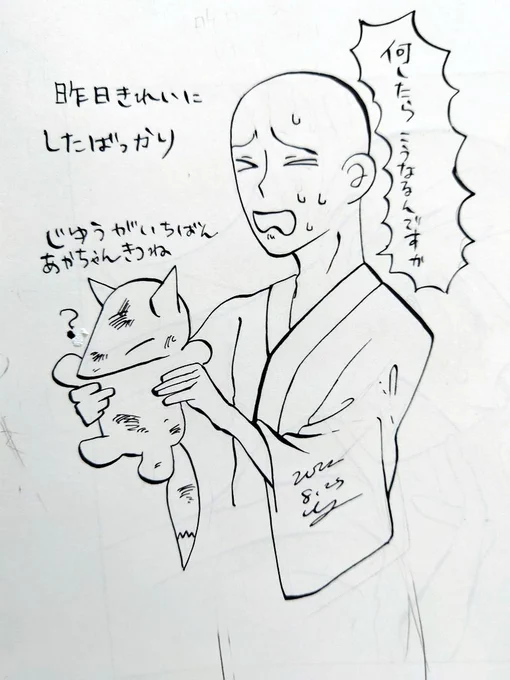 何したら
こうなるんですか
昨日きれいに
したばっかり
じゆうがいちばん
あかちゃんきつね
?
2022
8.25